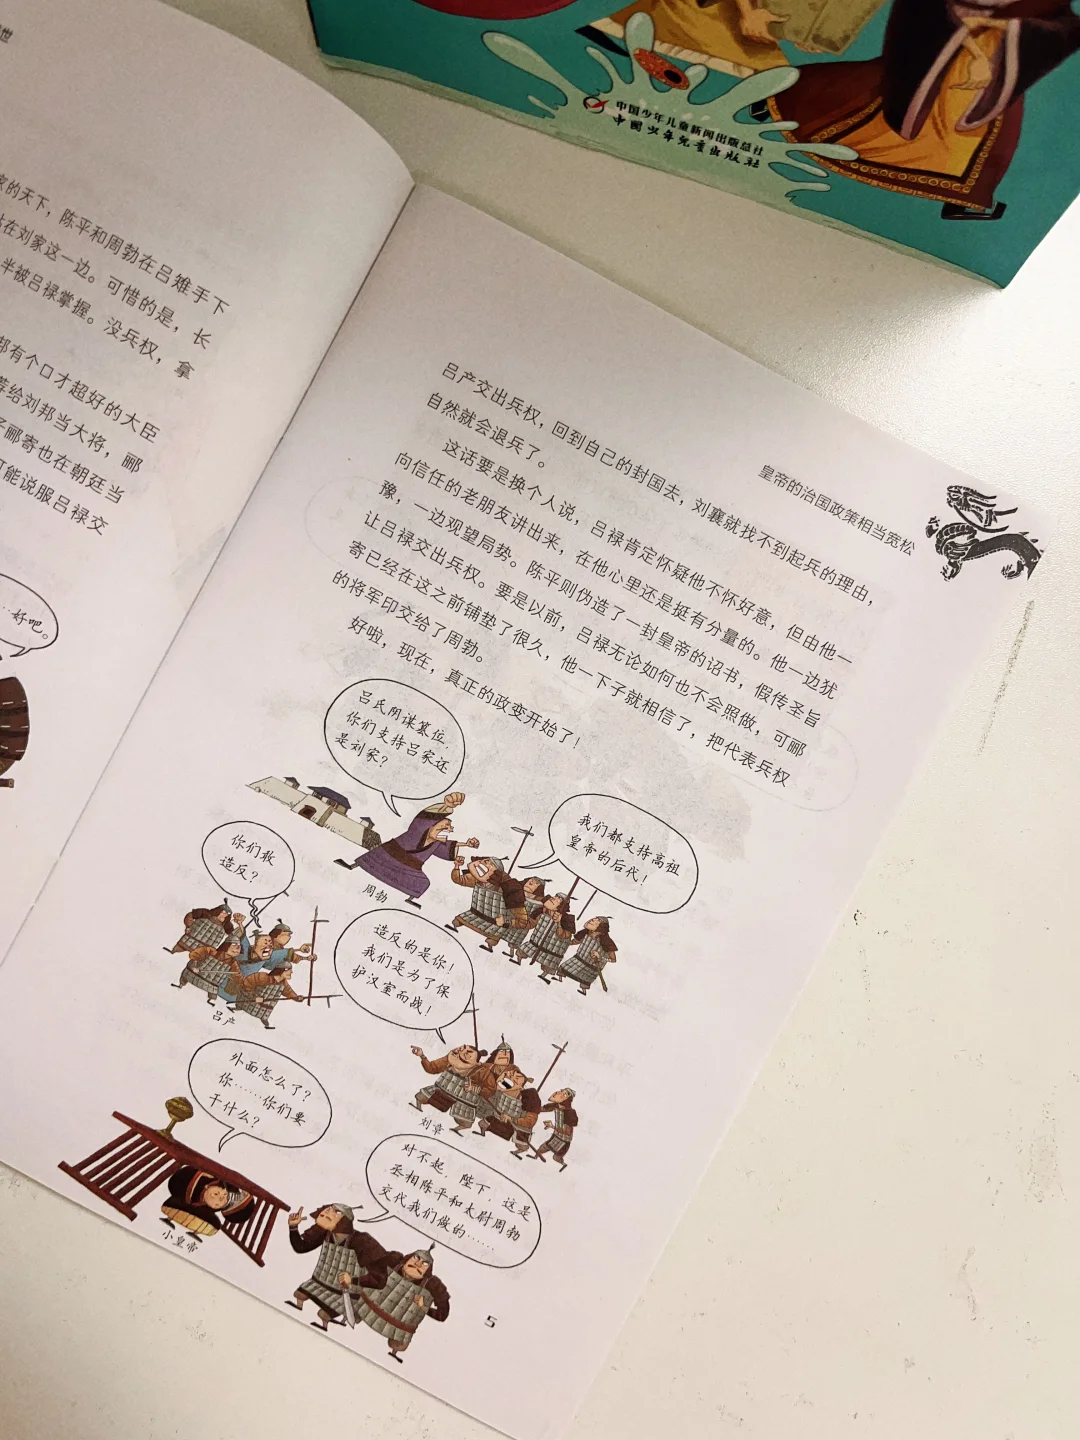 世
家的天下，陈平和周勃在吕雉手下
站在刘家这一边。可惜的是，长
半被吕禄掌握。没兵权，拿
邦有个口才超好的大臣
荐给刘邦当大将，郦
子郦寄也在朝廷当
可能说服吕禄交
……好吧。
中国少年儿童新闻出版总社
中国少年儿童出版社
皇帝的治国政策相当宽松
吕产交出兵权，回到自己的封国去，刘襄就找不到起兵的理由，
自然就会退兵了。
这话要是换个人说，吕禄肯定怀疑他不怀好意，但由他一
向信任的老朋友讲出来，在他心里还是挺有分量的。他一边犹
豫，一边观望局势。陈平则伪造了一封皇帝的诏书，假传圣旨
让吕禄交出兵权。要是以前，吕禄无论如何也不会照做，可郦
寄已经在这之前铺垫了很久，他一下子就相信了，把代表兵权
的将军印交给了周勃。
好啦，现在，真正的政变开始了！
吕氏阴谋篡位，
你们支持吕家还
是刘家？
我们都支持高祖
皇帝的后代！
周勃
你们敢
造反？
吕产
造反的是你！
我们是为了保
护汉室而战！
刘章
外面怎么了？
你……你们要
干什么？
小皇帝
对不起，陛下，这是
丞相陈平和太尉周勃
交代我们做的……
5